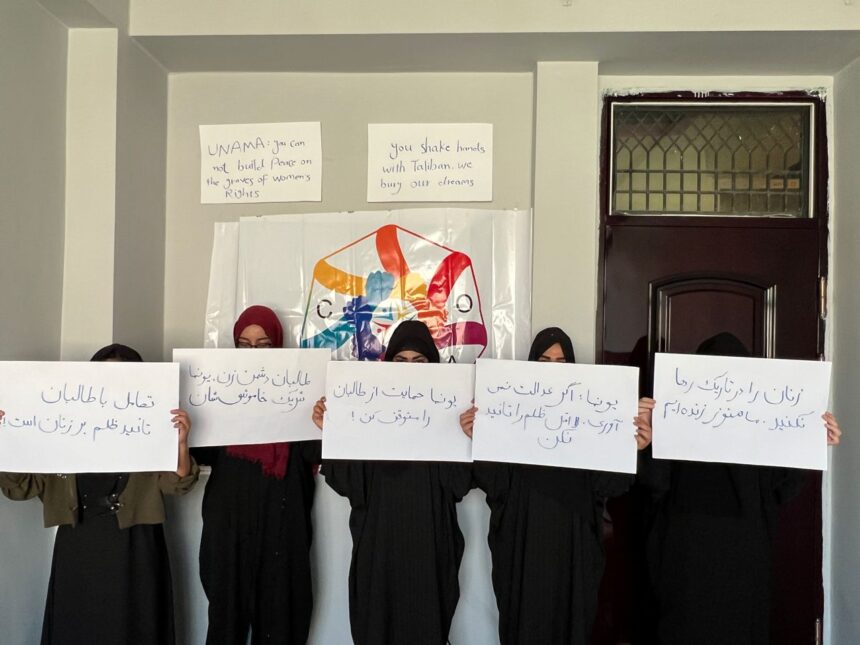 UNAMA: you can
not build Peace on
the graves of women's
Rights
you shake hands
with Taliban, we
bury our dreams
C
O
A
تعامل با طالبان
تائید ظلم بر زنان است!
طالبان دشمن زن، یونما
شریک خاموش شان
یونما حمایت از طالبان
را متوقف کن!
یونما: اگر عدالت نمی
آوری، لااقل ظلم را تائید
نکن
زنان را در تاریکی رها
نکنید. ما هنوز زنده ایم